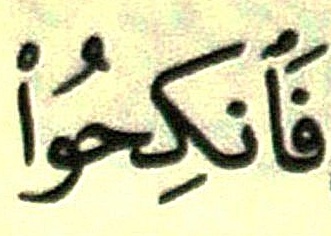 فَٱنكِحُوا۟